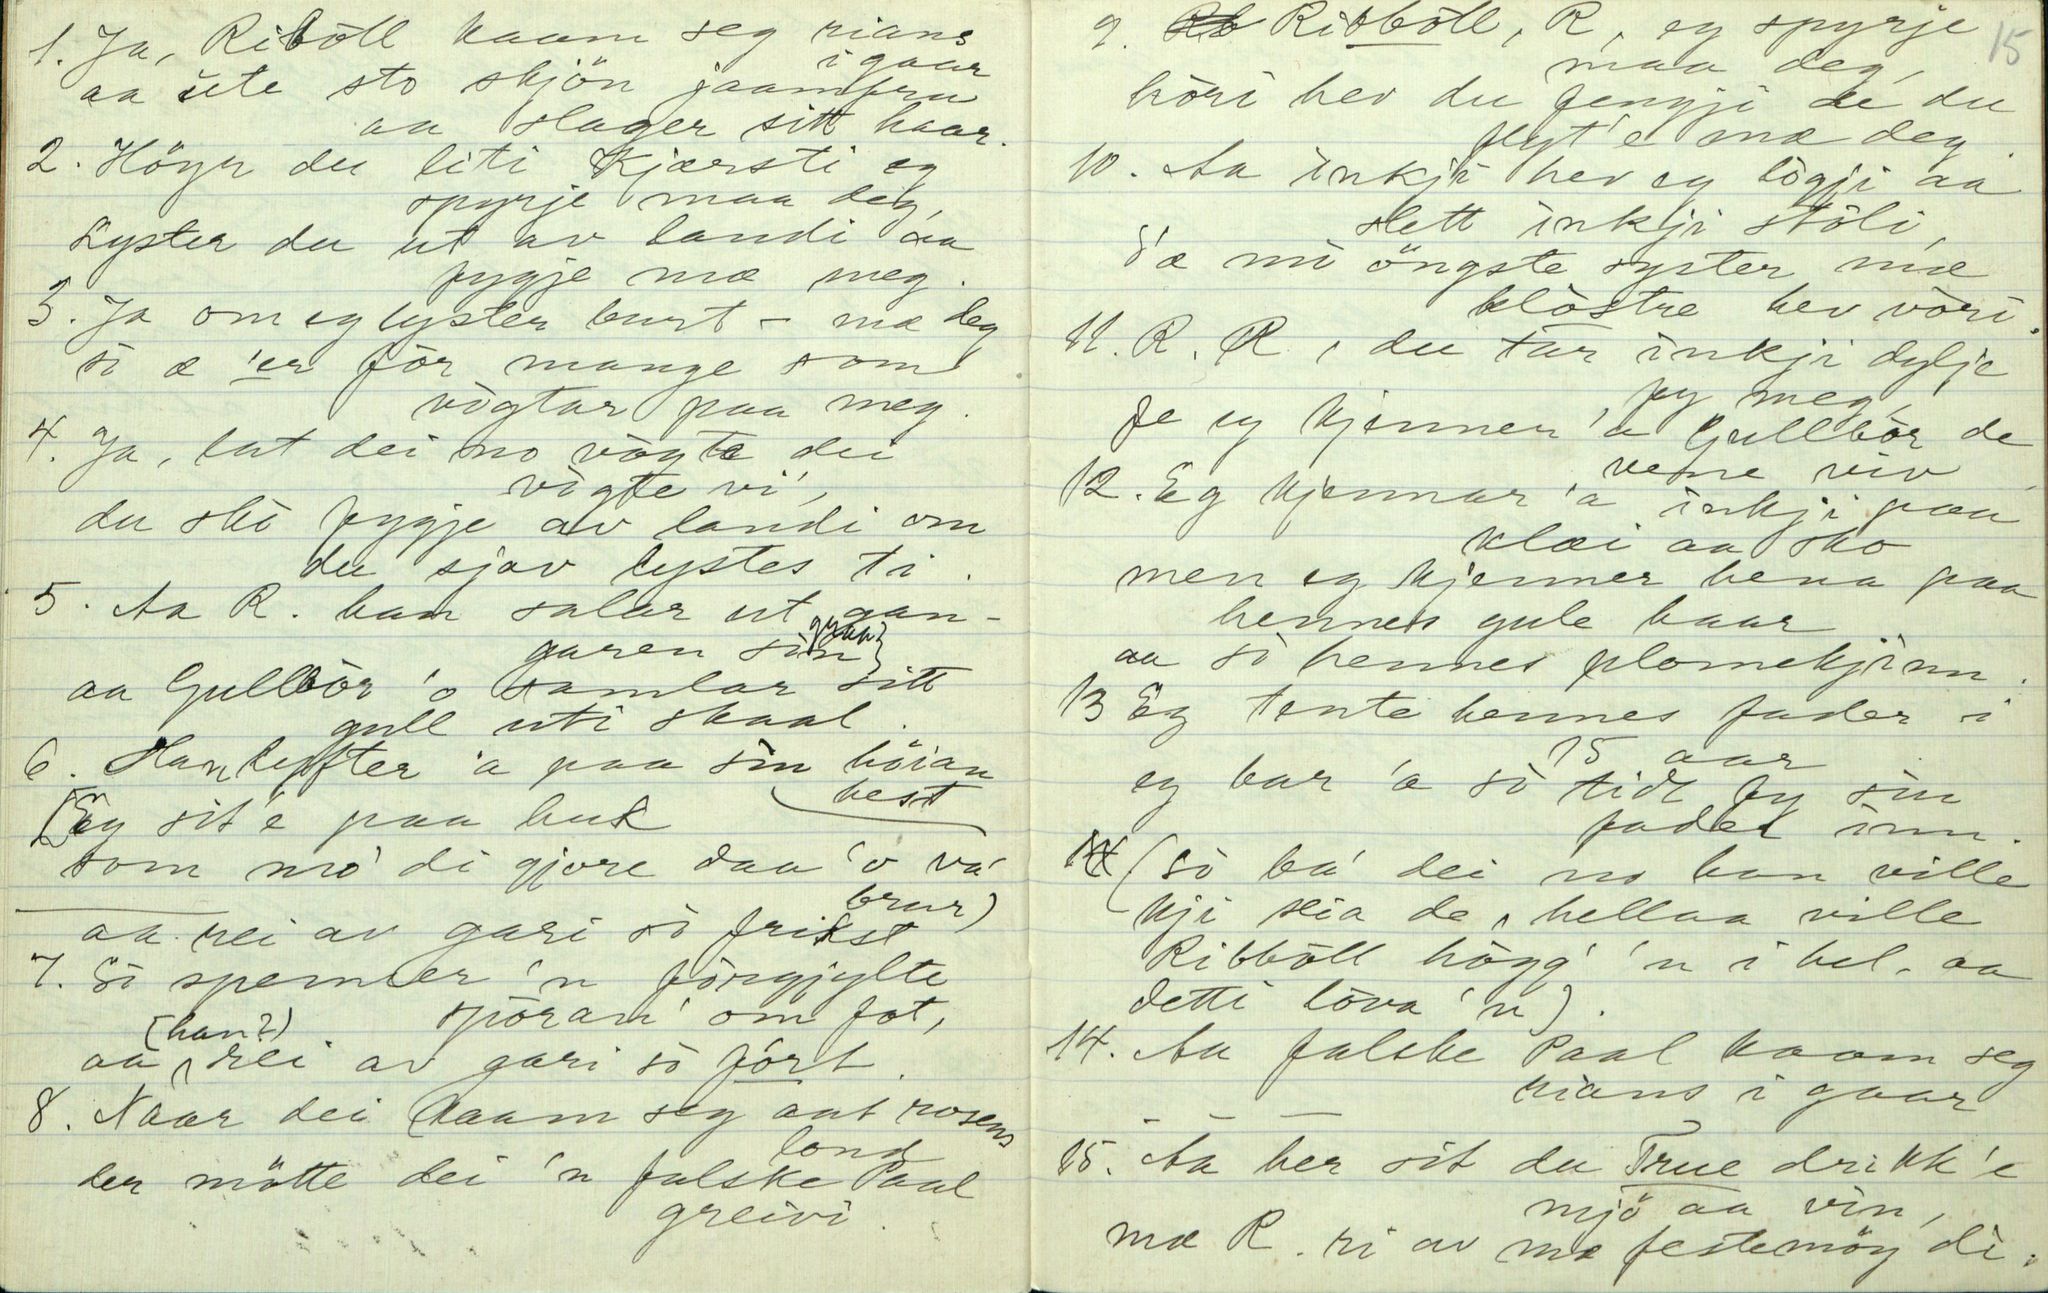 1. Ja, Riböll kaam seg rians
i gaar
aa ute sto skjön jaamfru
aa slager sitt haar.
2. Höyr du liti Kjærsti eg
spyrje maa deg,
Lyster du ut av landi aa
fygje mæ meg.
3. Ja om eg lyster burt – mæ deg
så æ 'er för mange som
vögtar paa meg.
4. Ja, lat dei no vögte dei
vögte vi',
du sko fygje av landi om
du sjav lystes ti.
5. Aa R. han salar ut gan-
garen sin graa}
aa Gullbör 'o samlar sitt
gull uti skaal.
6. Han lyfter 'a paa sin höian
hest
[Eg sit'e paa huk
som mö' di gjore daa 'o va'
brur)
aa rei av gari so frikst
7. So spenner 'n förgjylte
spöran' om fot,
(han?)
aa rei av gari so fört.
8. Naar dei kaam seg aat rosens
lond
der mötte dei 'n falske Paal
greivi.
15
9. Ribböll, R, eg spyrje
maa deg,
höri hev du fengji de du
flyt'e mæ deg.
10. Aa inkji hev eg lögji aa
slett inkji stöli,
D'æ mi öngste syster mæ
klöstre hev vöri.
11. R. R., du tar inkji dylje
fy meg,
Fe eg kjenner 'a Gullbör de
vene viv
12. Eg kjennar 'a inkji paa
klæi aa sko
men eg kjenner hena paa
hennes gule haar
aa so hennes plomekjinn.
13 Eg tente hennes fader i
15 aar
eg bar 'a so tidt fy sin
fader inn.
(So ba' dei no han ville
kji seia de, hellaa ville
Ribböll högg' 'n i hel. aa
detti löva 'n).
14. Aa falske Paal kaam seg
rians i gaar
– – –
15. Aa her sit du True drikk'e
mjö aa vin,
mæ R. ri av mæ festemöy di.